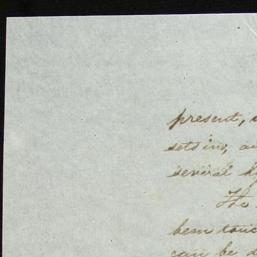 present,
sets in,
several
The
been touc
can be d